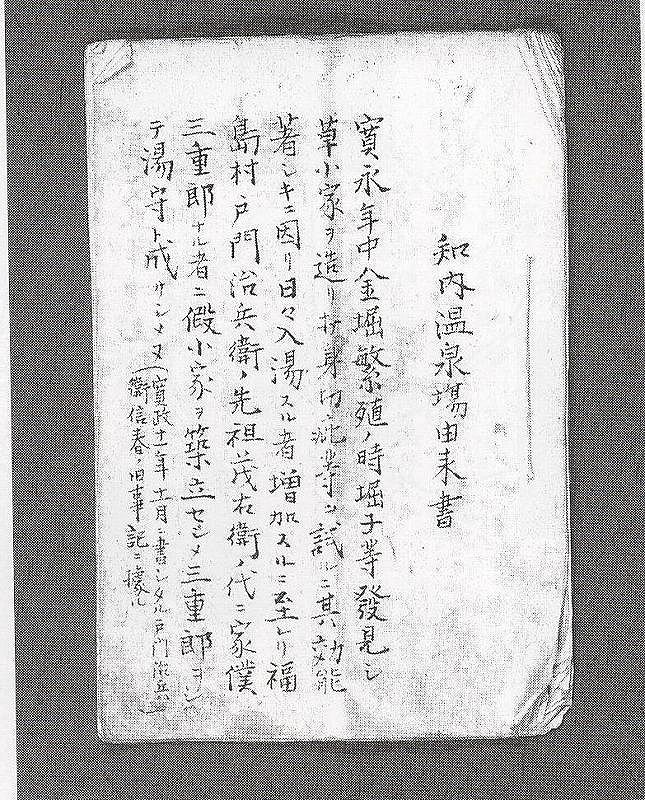 知内温泉場由来書
寳永年中金堀繁殖ノ時堀子等發見シ
草小家ヲ造リ打身切疵等ニ試ルニ其効能
著シキニ因リ日々入湯スル者増加スルニ至レリ福
島村戸門治兵衛ノ先祖茂右衛ノ代ニ家僕
三重郎ナル者ニ假小家ヲ築立セシメ三重郎ヲシ
テ湯守ト成サシメヌ
(寛政十一年十一月ニ書シタル戸門治兵
衛信春ノ旧事記ニ據ル